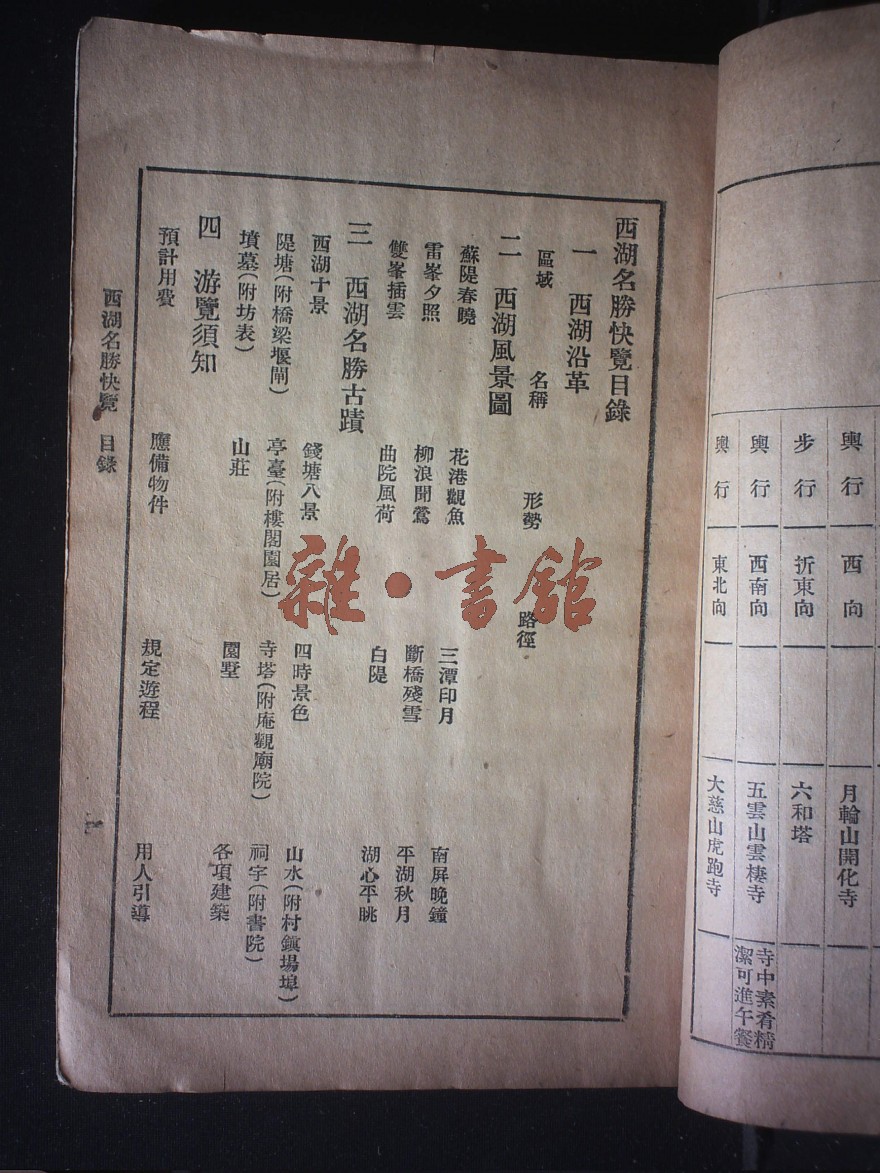 輿行　西向　月輪山開化寺
步行　折東向　六和塔
輿行　西南向　五雲山雲棲寺　寺中素肴精潔可進午餐
輿行　東北向　大慈山虎跑寺
西湖名勝快覽目錄
一　西湖沿革
區域　名稱　形勢　路徑
二　西湖風景圖
蘇隄春曉　花港觀魚　三潭印月　南屏晚鐘
雷峯夕照　柳浪聞鶯　斷橋殘雪　平湖秋月
雙峯插雲　曲院風荷　白隄　湖心平眺
三　西湖名勝古蹟
西湖十景　錢塘八景　四時景色　山水(附村鎭場埠)
隄塘(附橋梁堰閘)　亭臺(附樓閣園居)　寺塔(附庵觀廟院)　祠宇(附書院)
墳墓(附坊表)　山莊　園墅　各項建築
四　游覽須知
預計用費　應備物件　規定遊程　用人引導
西湖名勝快覽　目錄　一
雜·書館